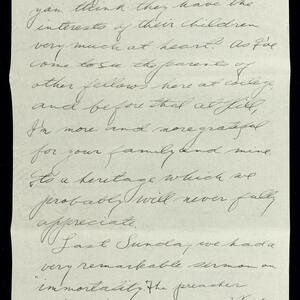 you think they have the
interests of their children
very much at heart? As I've
come to see the parents of
other fellows here at college
and before that at Hill,
I'm more and more grateful
for your family and mine.
Its a heritage which we
probably will never fully
appreciate.
Last Sunday we had a
very remarkable sermon on
immortality. The preacher